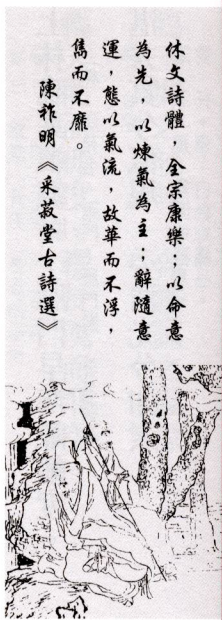 休文詩體，全宗康樂；以命意
為先，以煉氣為主；辭隨意
運，態以氣流，故華而不浮，
雋而不靡。
陳祚明《采菽堂古詩選》